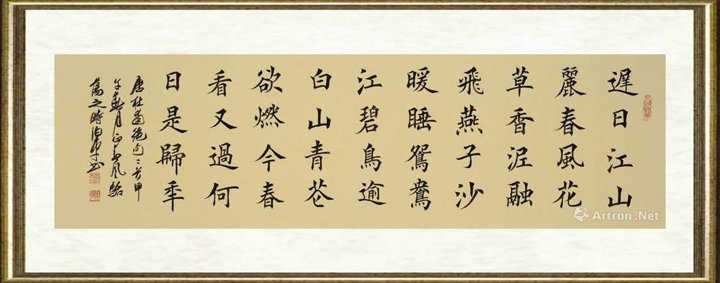 遲日江山
麗春風花
草香泥融
飛燕子沙
暖睡鴛鴦
江碧鳥逾
白山青花
欲燃今春
看又過何
日是歸秊
唐杜甫絕句二首甲
午月正春風駘
蕩之時
Artron.Net